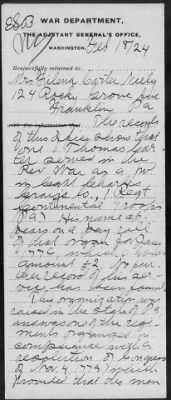 WAR DEPARTMENT,
THE ADJUTANT GENERAL'S OFFICE,
WASHINGTON, Feb 18/24
Respectfully returned to
Mrs Eilena Carter Neely
124 Rocky Grove Ave
Franklin Pa
The records
of this office show that
one Thomas Car-
ter served in the
Rev War as a
in Capt
Co., 1 Regt
Continental Troops
Pa) His name ap-
pears on a pay roll
of that organ for Jan
1776
amount £2. No fur-
ther record of his ser-
vice has been found.
This organization was
raised in the State of Pa
and was one of the regi-
ments organized in
compliance with a
resolution of Congress
of Nov 4, 1775 which
provided that the men